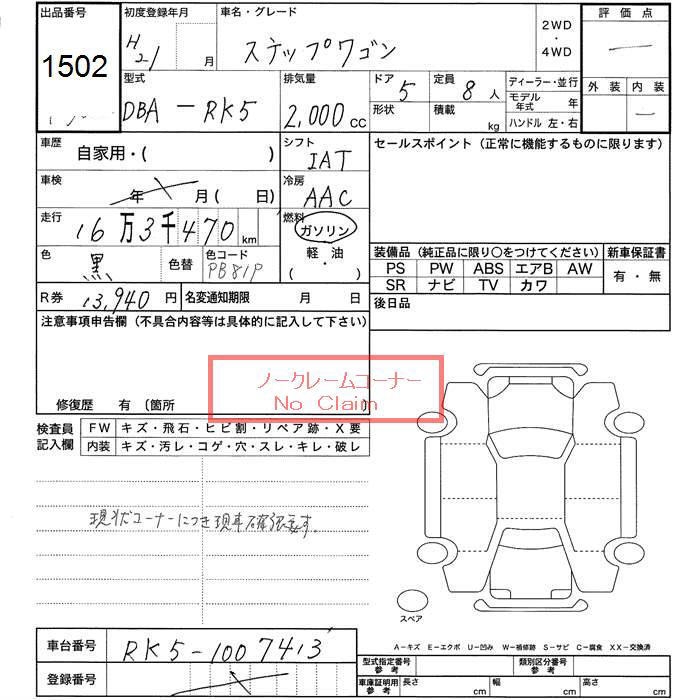 出品番号
1502
初度登録年月
H21 月
車名・グレード
ステップワゴン
2WD
・
4WD
評価点
外装 内装
型式
DBA-RK5
排気量
2,000 cc
ドア 5
形状
定員 8 人
積載 kg
ディーラー・並行
モデル年式 年
ハンドル 左・右
車歴
自家用・( )
シフト
IAT
セールスポイント (正常に機能するものに限ります)
車検
年 月 ( 日)
冷房
AAC
走行
16万3千470 km
燃料
ガソリン
軽・油
( ・ )
色
黒
色替
色コード
PB81P
装備品 (純正品に限り〇をつけてください)
PS PW ABS エアB AW
SR ナビ TV カワ
新車保証書
有・無
R券 13,940 円
名変通知期限 月 日
後日品
注意事項申告欄 (不具合内容等は具体的に記入して下さい)
ノークレームコーナー
No Claim
修復歴 有 〔箇所
検査員
記入欄
FW キズ・飛石・ヒビ割・リペア跡・X要
内装 キズ・汚レ・コゲ・穴・スレ・キレ・破レ
現状コーナーにつき現車確認要す。
スペア
A-キズ E-エクボ U-凹み W-補修跡 S-サビ C-腐食 XX-交換済
車台番号 RK5-1007413
登録番号
型式指定番号
参考
類別区分番号
参考
車庫証明用
参考
長さ cm
幅 cm
高さ cm